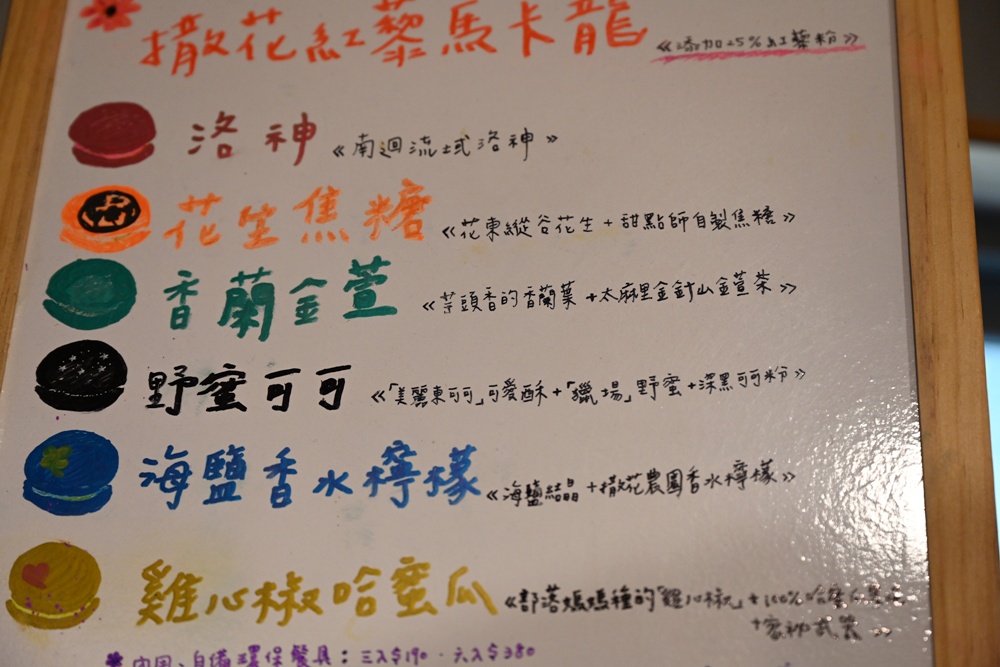 撒花紅藜馬卡龍 《添加25%紅藜粉》
洛神 《南迴流域洛神》
花生焦糖 《花東縱谷花生+甜點師自製焦糖》
香蘭金萱 《芋頭香的香蘭葉+太麻里金針山金萱茶》
野蜜可可 《「美麗東可可」可愛酥+「獵場」野蜜+深黑可可粉》
海鹽香水檸檬 《海鹽結晶+撒花農園香水檸檬》
雞心椒哈蜜瓜 《部落媽媽種的「雞心椒」+100%哈蜜瓜
內用、自備環保餐具：三入$190．六入$380